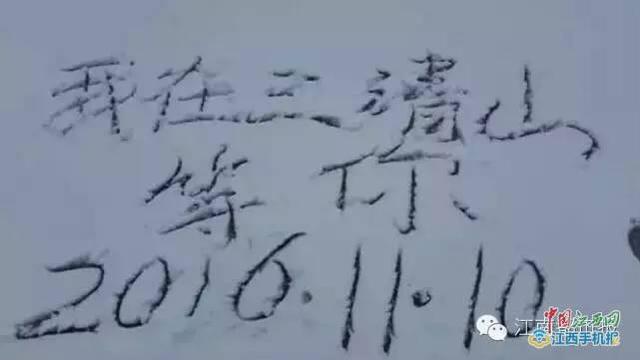 我在三清山
等你
2016.11.10
中国江西网
江西手机报